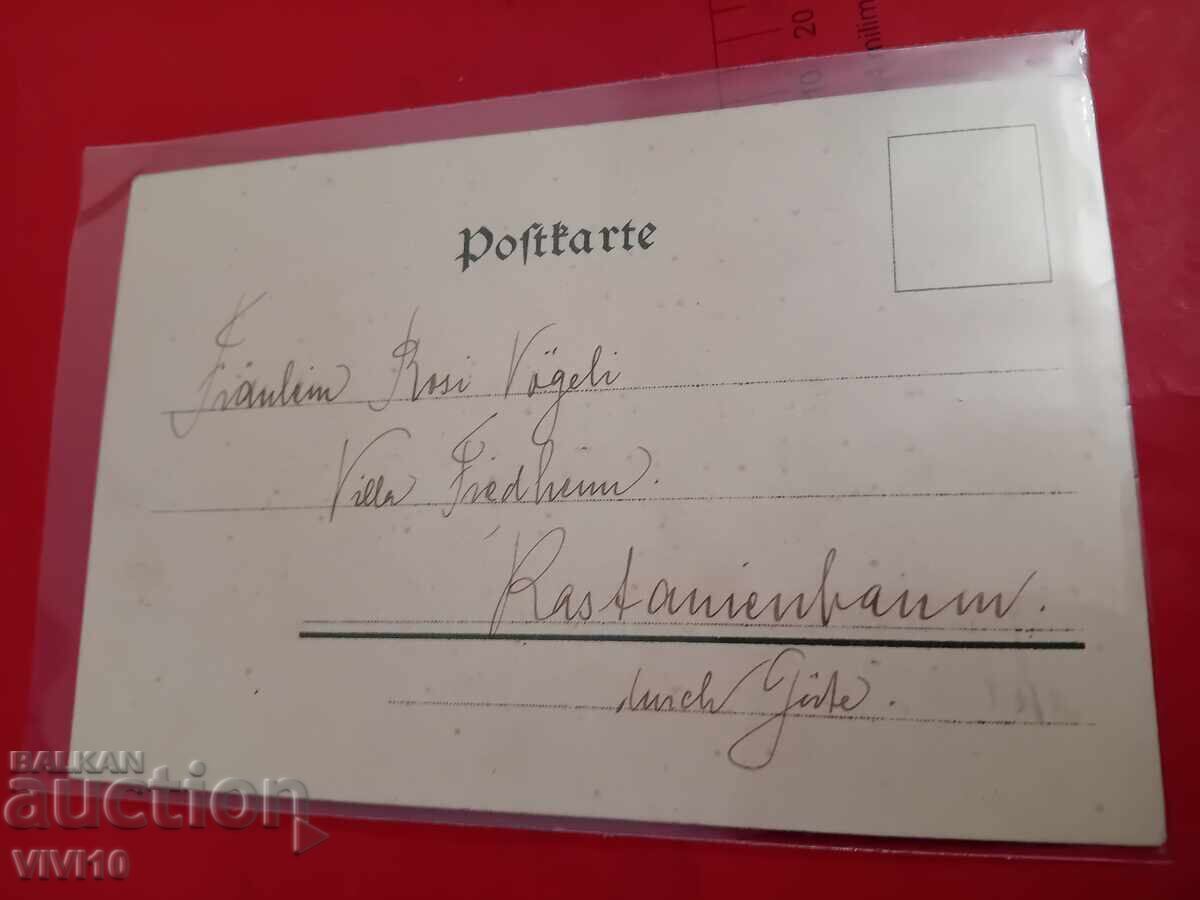 20
10
milim
Postkarte
Fräulein Rosi Vögeli
Villa Friedheim.
Kastanienbaum.
durch Güte.
BALKAN
auction
VIVI10